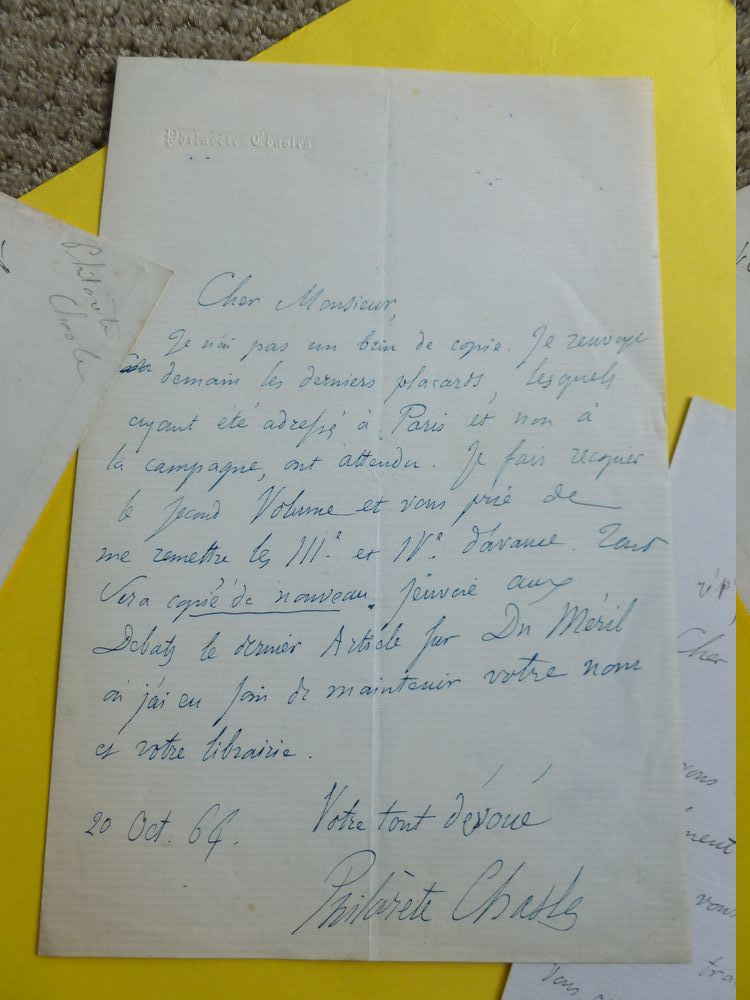 Philarète Chasles
Philarète
Chasle
Cher Monsieur,
Je n'ai pas un brin de copie. Je renvoye
demain les derniers placards, lesquels
ayant été adressé à Paris et non à
la campagne, ont attendu. Je fais recopier
le second Volume et vous prie de
me remettre les IIIe et IVe d'avance. Tout
Sera copié de nouveau. J'envoie aux
Debats le dernier Article sur Du Méril
où j'ai eu soin de maintenir votre nom
et votre librairie.
20 Oct. 64. Votre tout dévoué
Philarète Chasles
Cher
vous
tra